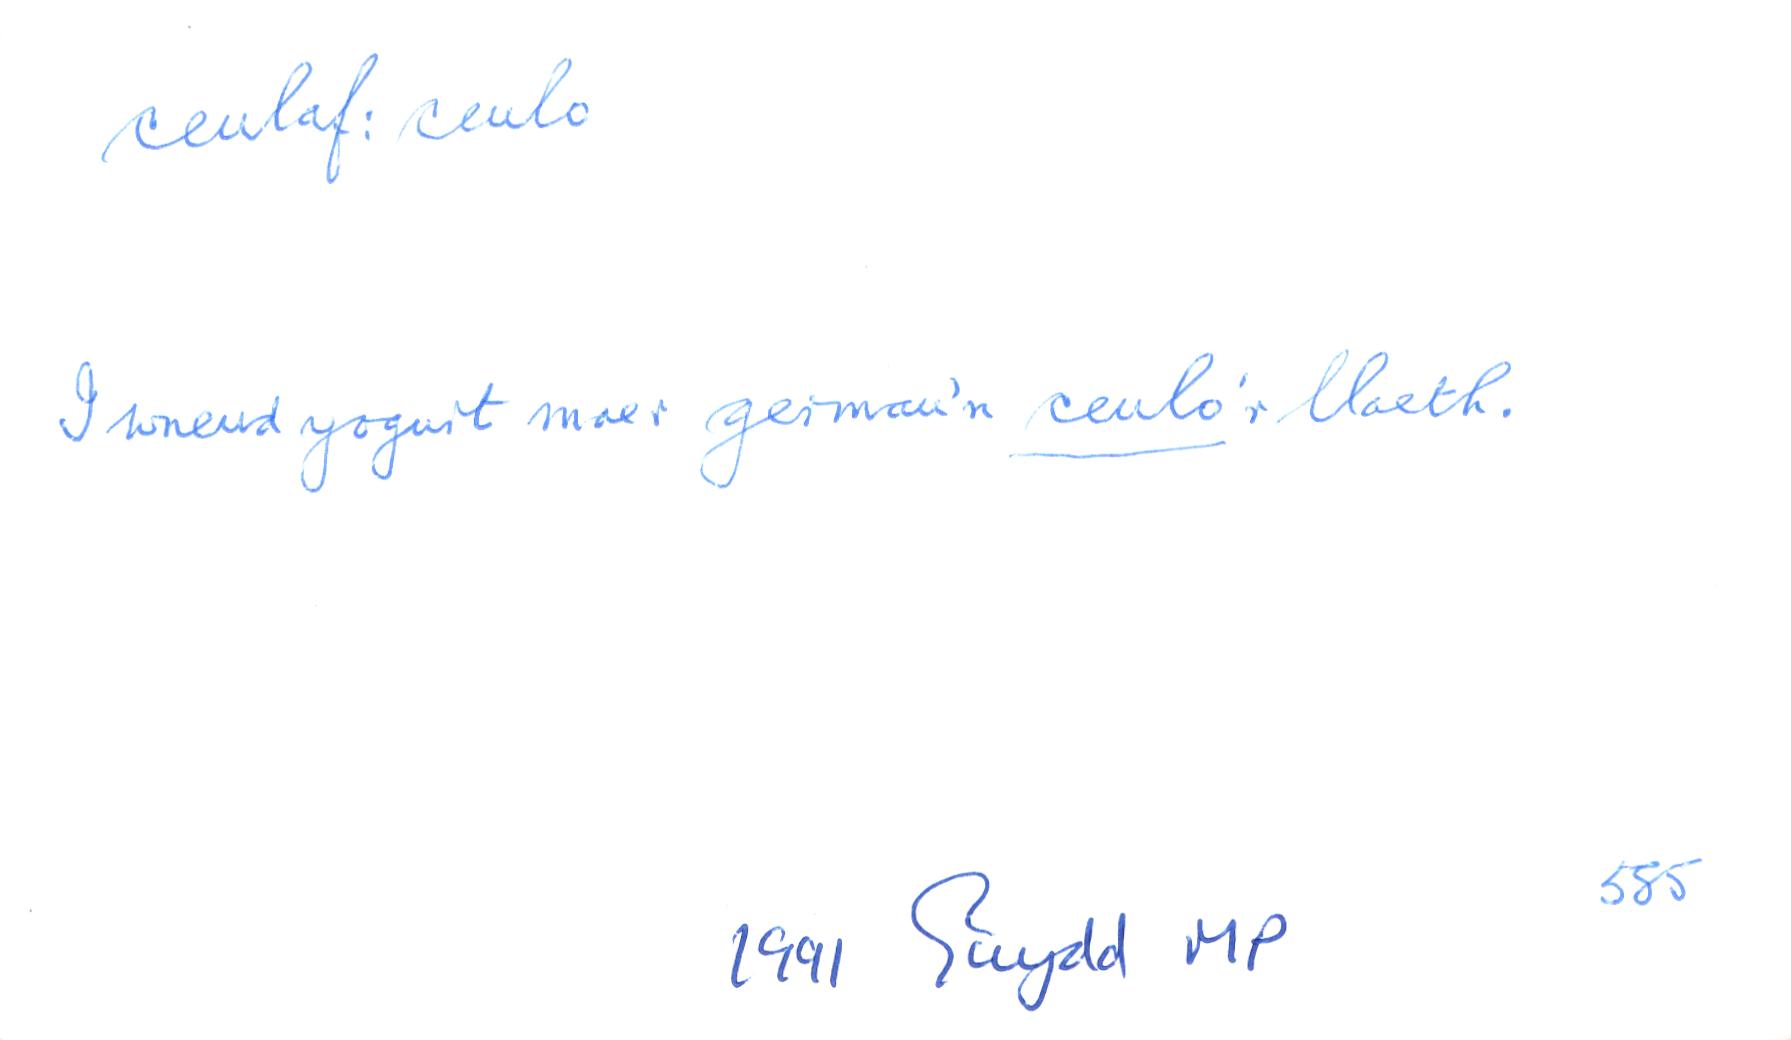 ceulaf: ceulo
I wneud yogurt maer germau'n ceulo'r llaeth.
585
1991 Gwydd MP